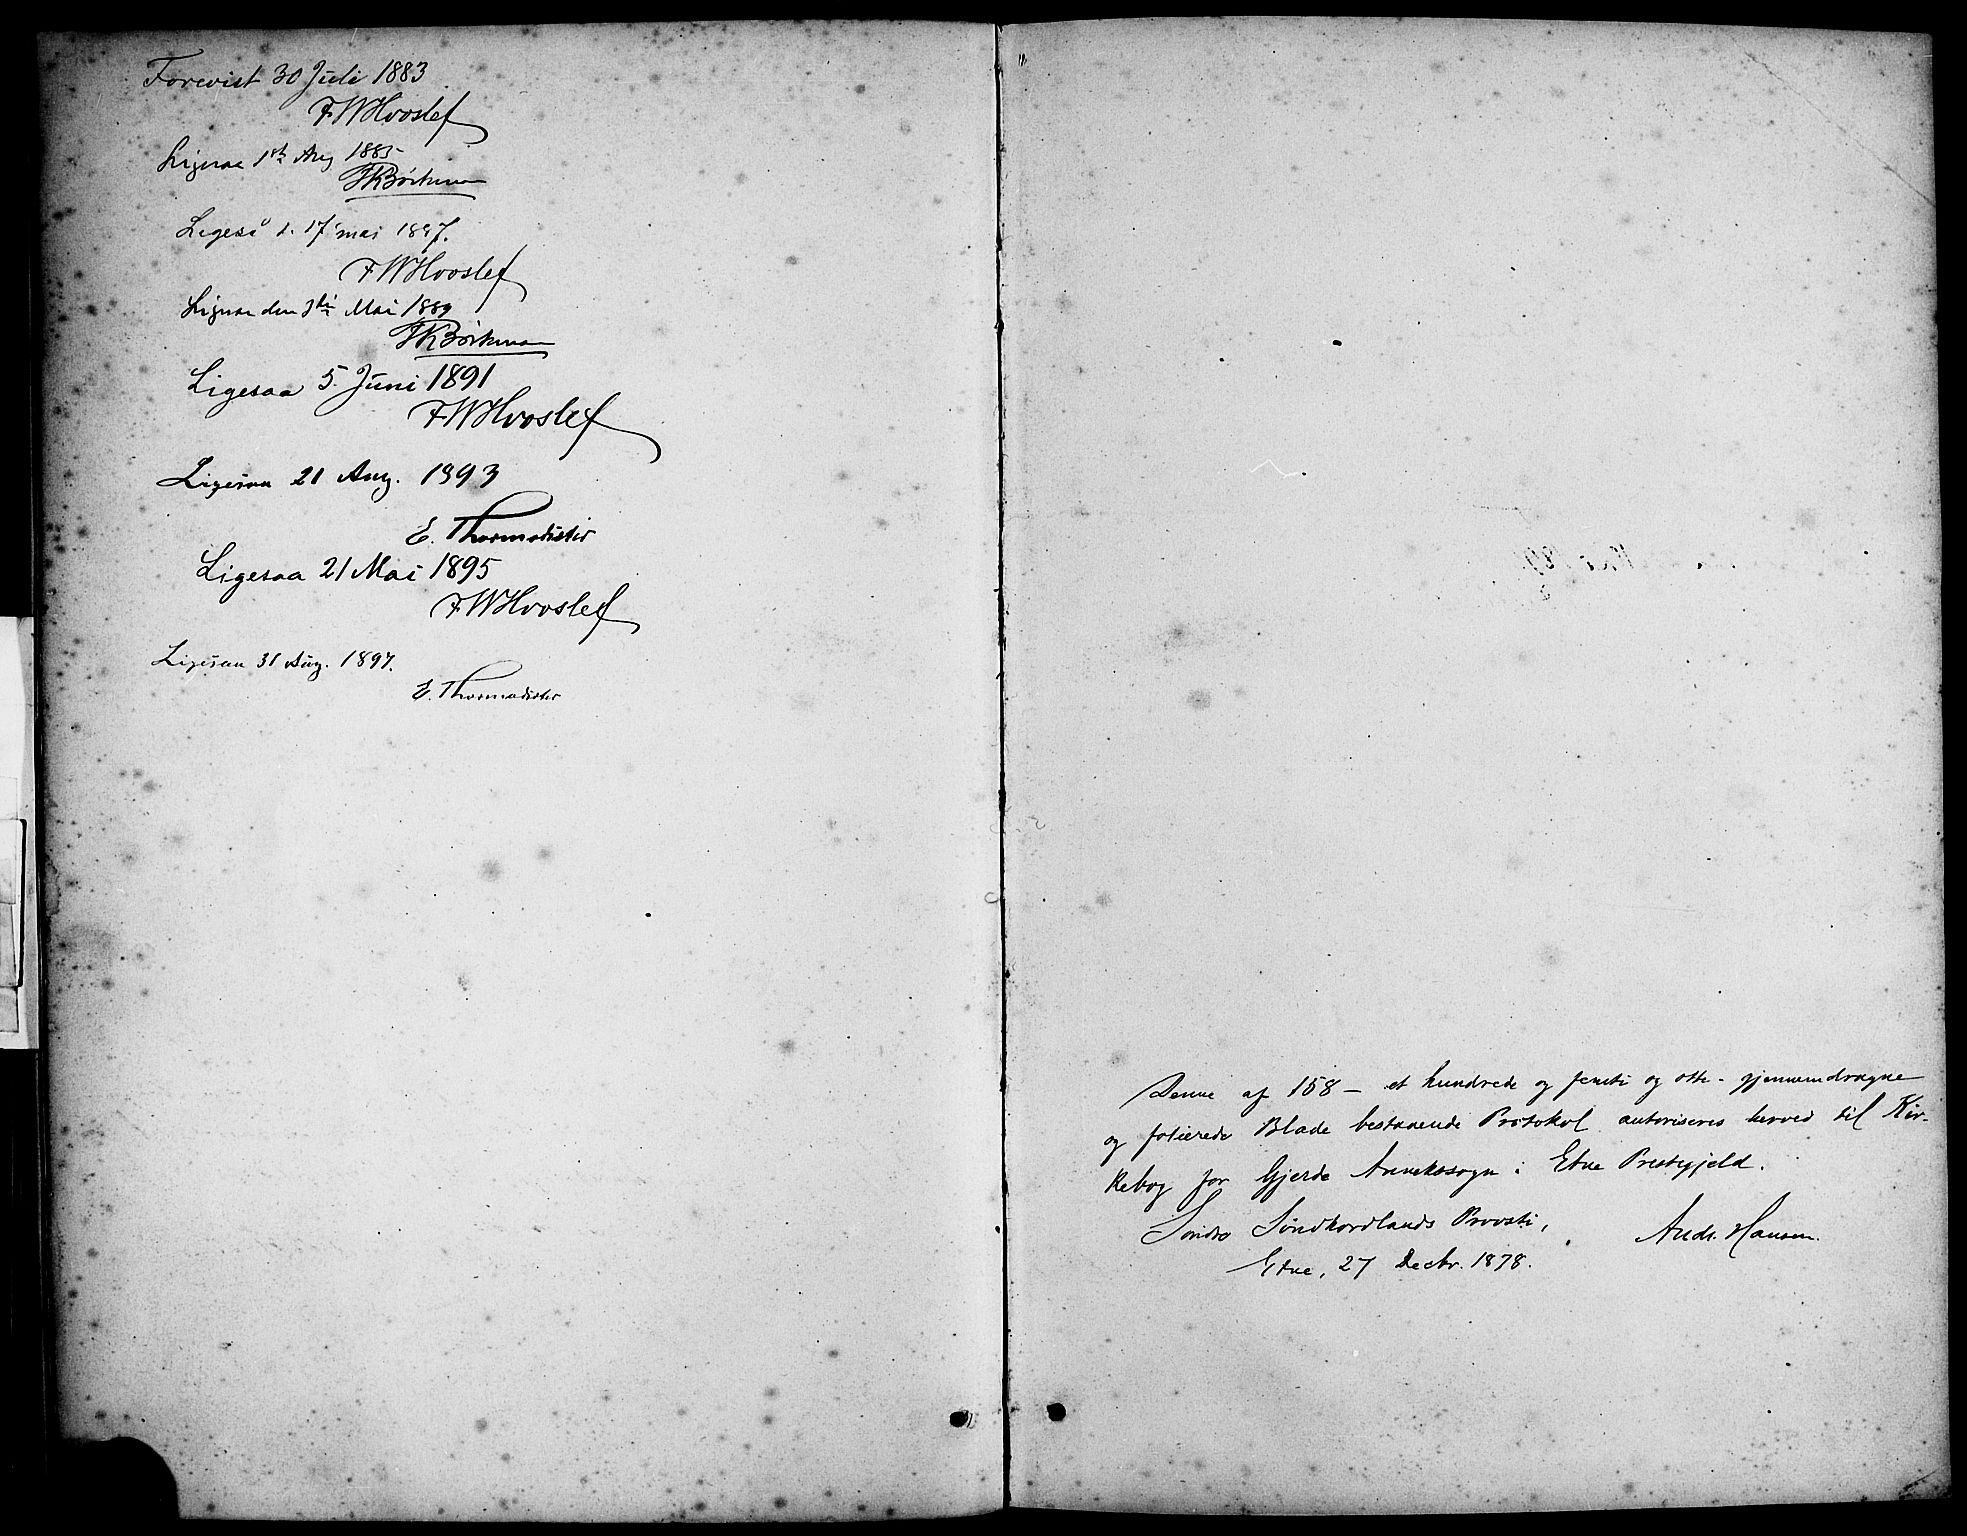 Forevist 30 Juli 1883
F W Hvoslef
Ligesaa 1st Aug 1885
Ligeså d. 17 mai 1887.
F W Hvoslef
Ligesaa den 3die Mai 1889
Ligesaa 5. Juni 1891
F W Hvoslef
Ligesaa 21 Aug. 1893
E. Thormodsæter
Ligesaa 21 Mai 1895
F W Hvoslef
Ligesaa 31 Aug. 1897.
E. Thormodsæter
Denne af 158 - et hundrede og femti og otte - gjennemdragne
og folierede Blade bestaaende Protokol autoriseres herved til Kir-
kebog for Gjerde Annekssogn i Etne Prestegjeld.
Søndre Søndhordlands Provsti,
Etne, 27 Decbr. 1878.
Andr. Hansen.